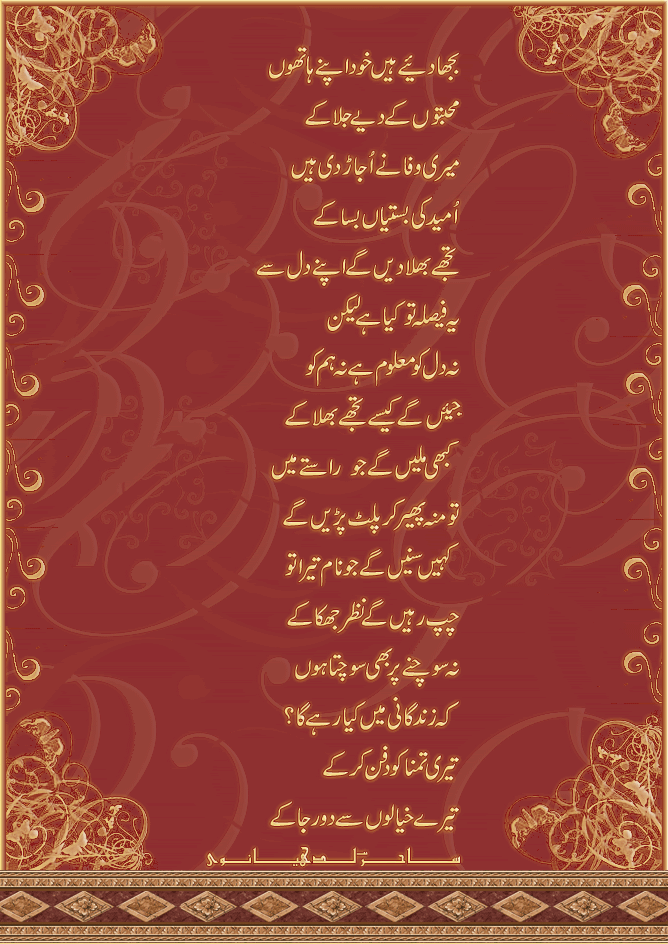 بجھا دئیے ہیں خود اپنے ہاتھوں
محبتوں کے دیے جلا کے
میری وفا نے اُجاڑ دی ہیں
اُمید کی بستیاں بسا کے
تجھے بھلا دیں گے اپنے دل سے
یہ فیصلہ تو کیا ہے لیکن
نہ دل کو معلوم ہے نہ ہم کو
جیئں گے کیسے تجھے بھلا کے
کبھی ملیں گے جو راستے میں
تو منہ پھیر کر پلٹ پڑیں گے
کہیں سنیں گے جو نام تیرا تو
چپ رہیں گے نظر جھکا کے
نہ سوچنے پر بھی سوچتا ہوں
کہ زندگانی میں کیا رہے گا؟
تیری تمنا کو دفن کر کے
تیرے خیالوں سے دور جا کے
ساحر لدھیانوی